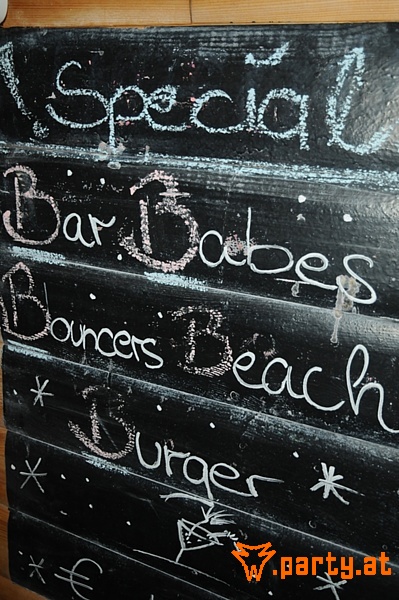 ! Special
Bar Babes
Bouncers Beach
Burger
€
.party.at